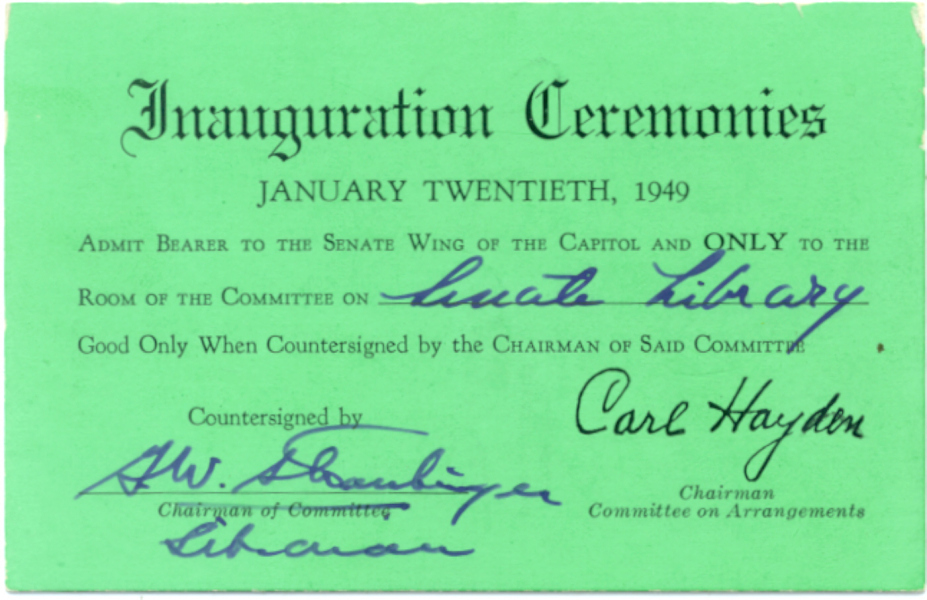 Inauguration Ceremonies
JANUARY TWENTIETH, 1949
ADMIT BEARER TO THE SENATE WING OF THE CAPITOL AND ONLY TO THE
ROOM OF THE COMMITTEE ON Senate Library
Good Only When Countersigned by the CHAIRMAN OF SAID COMMITTEE
Carl Hayden
Countersigned by
Chairman
Chairman of Committee
Committee on Arrangements
Librarian